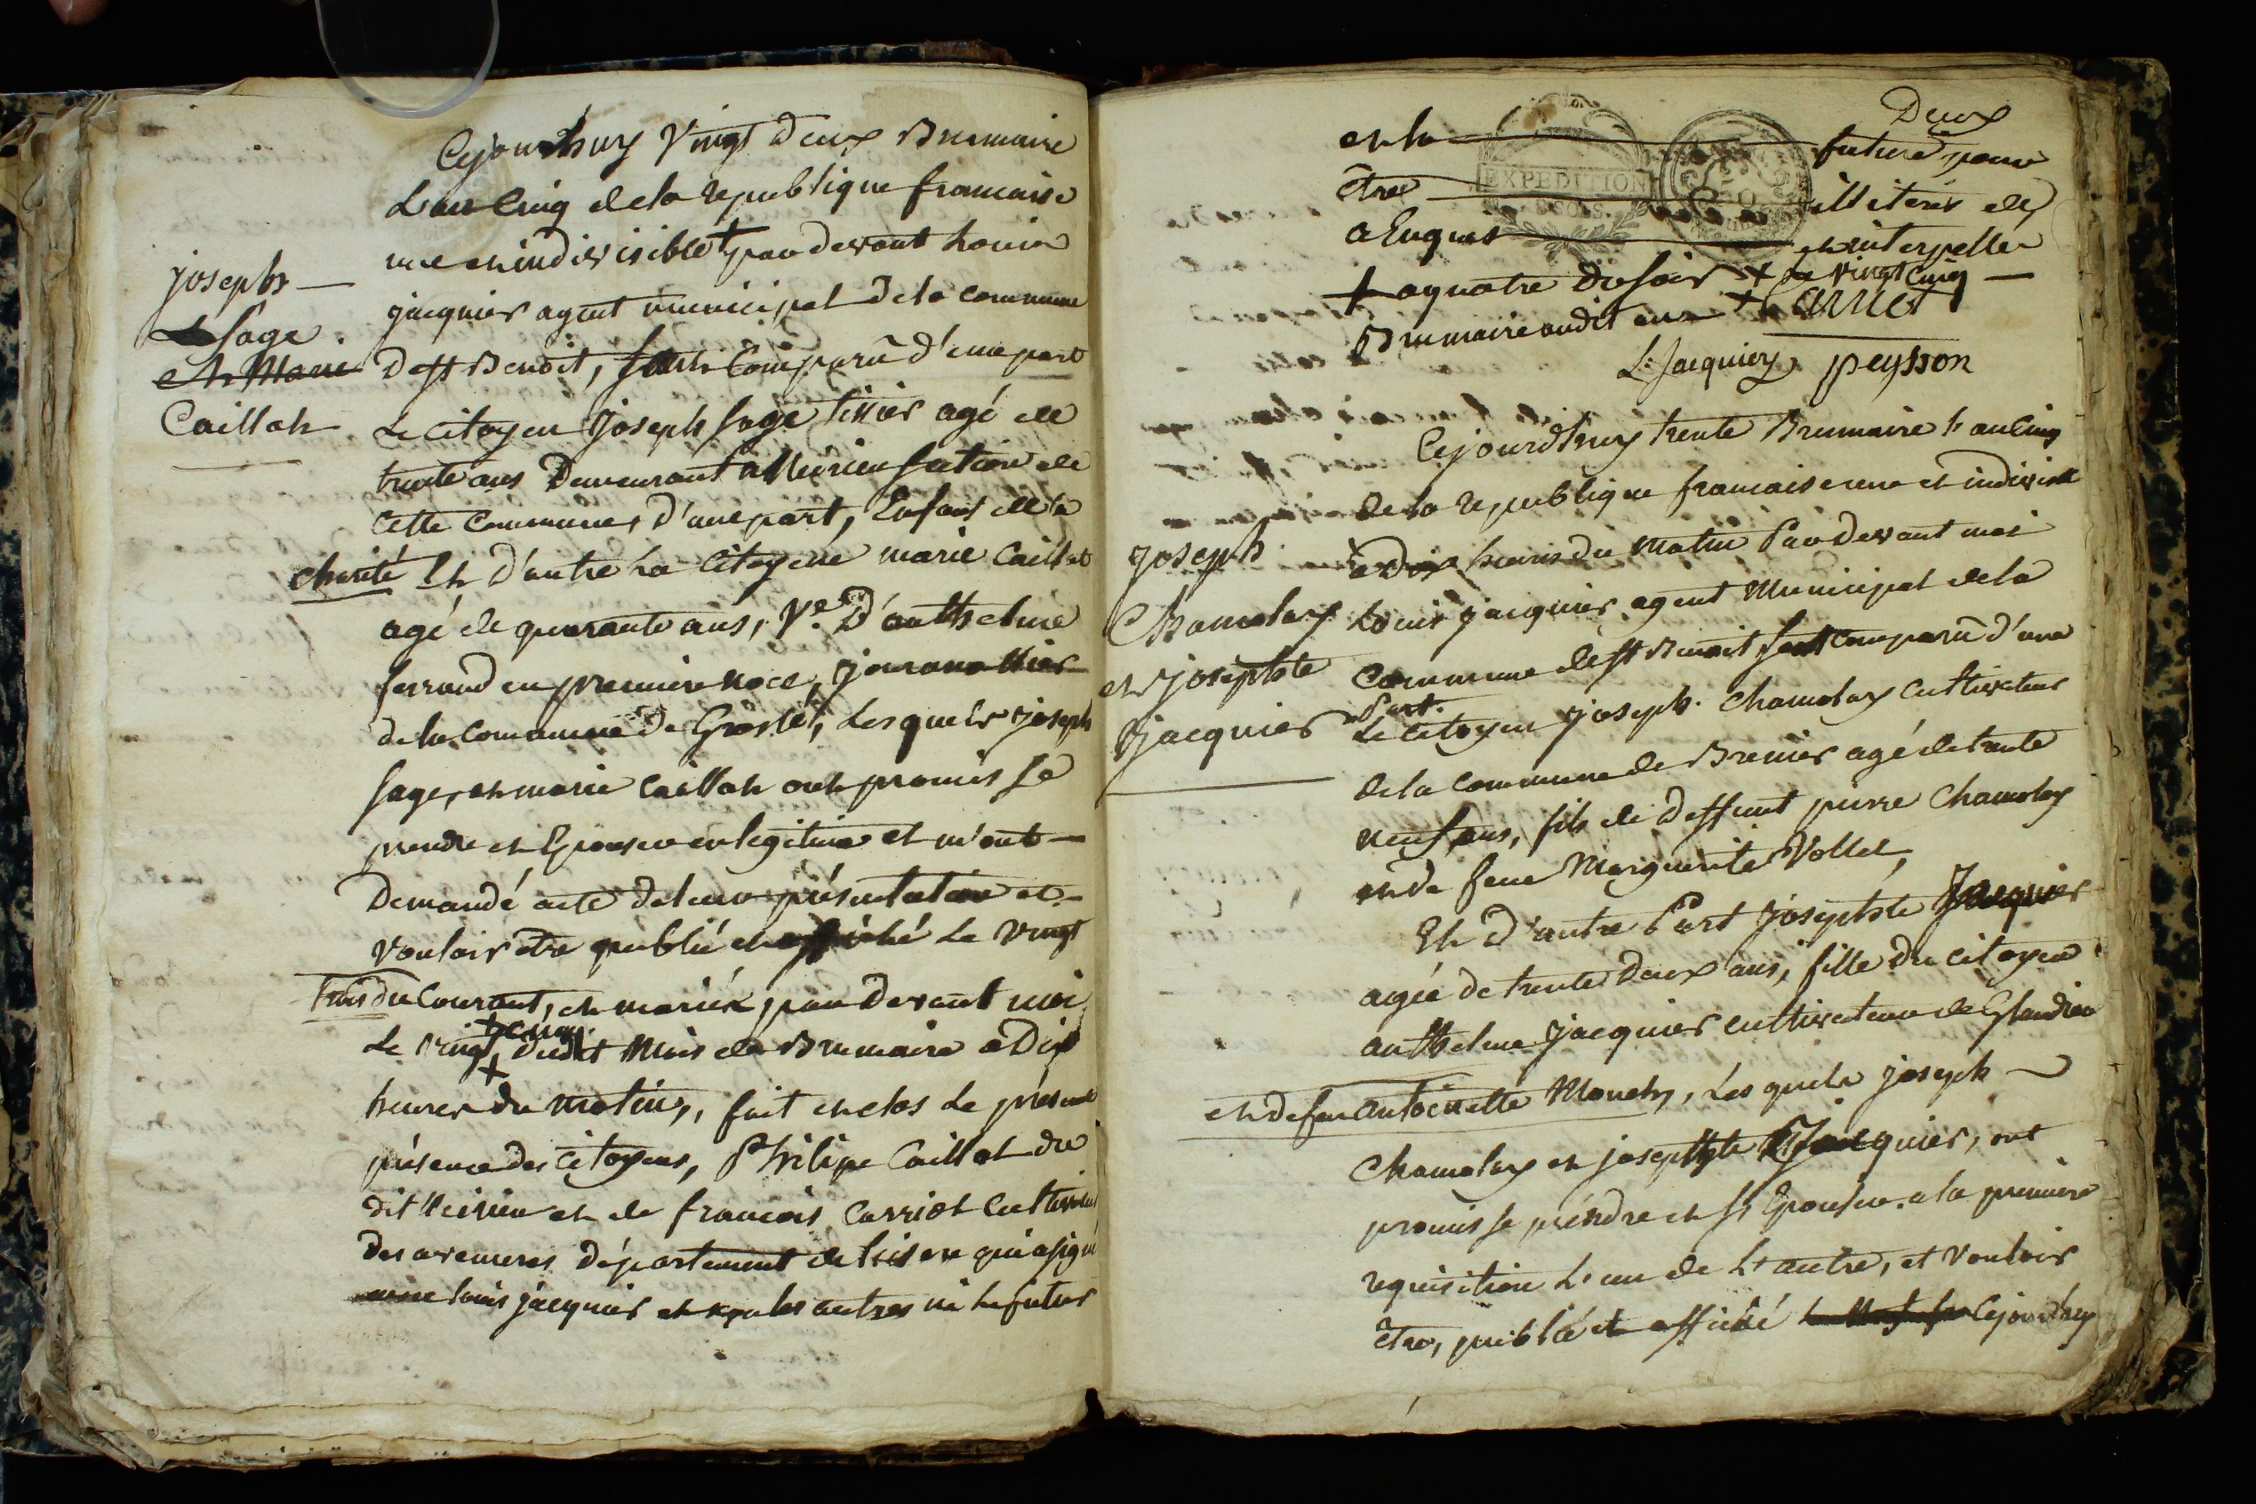 Cejourdhuy Vingt Deux Brumaire
L'an Cinq de la republique francaise
une et indivisible + par devant Louis
jacquier agent municipal de la commune
De St Benoit, sont Comparû d'une part
Le citoyen Joseph Sage tissier agé de
trente ans Demeurant a section de
cette Commune, d'une part, Enfant de la
charité Et D'autre La Citoyene marie Caillat
agé de quarante ans, Ve. D'anthelme
ferrand en premiere noce, journallier
de la Commune De Groslé, Lesquels joseph
Sage, et marie Caillat ont promis se
prendre et Epouser en legitime et m'ont
Demandé acte de leur présentation et
vouloir etre publié et affiché Le Vingt
trois du Courant, et mariéx par devant moi
Le Vingt + cinq + dudit Mois de Brumaire a Dix
heures du matin, fait et clos Le présent
présence des Citoyens, Philipe Caillat du
dit et de francois Carriot Cultivateur
des avenieres département de lisere qui a signé
Louis jacquier et non les autres ni le futur
joseph
Sage
et Marie
Caillat
Deux
et la future pour
être illiterés de
a Enquis et interpellé
+ a quatre du soir + Le vingt Cinq
Brumaire audit an
L. Jacquier peysson
Cejourdhuy trente Brumaire l'an Cinq
de la republique francaise une et indivisible
a Dix heures du matin Par Devant moi
Louis jacquier agent Municipal de la
Commune de St Benoit sont comparû d'une
Part.
Le Citoyen joseph Chamolay Cultivateur
de la commune de Brenier agé de trente
neuf ans, fils de Deffunt pierre Chamolay
et de feue Marguerite Vollet,
Et D'autre Part josephte Jacquier
agée de trente Deux ans, fille du Citoyen
anthelme jacquier cultivateur de Glandieu
et de feu antoinette Monety, Lesquels joseph
Chamolay et josephte Jacquier, ont
promis se préndre et s'Epouser a la premiere
requisition L'un de L'autre, et vouloir
Être, publié et affiché Cejourdhuy
joseph
Chamolay
et josephte
jacquier